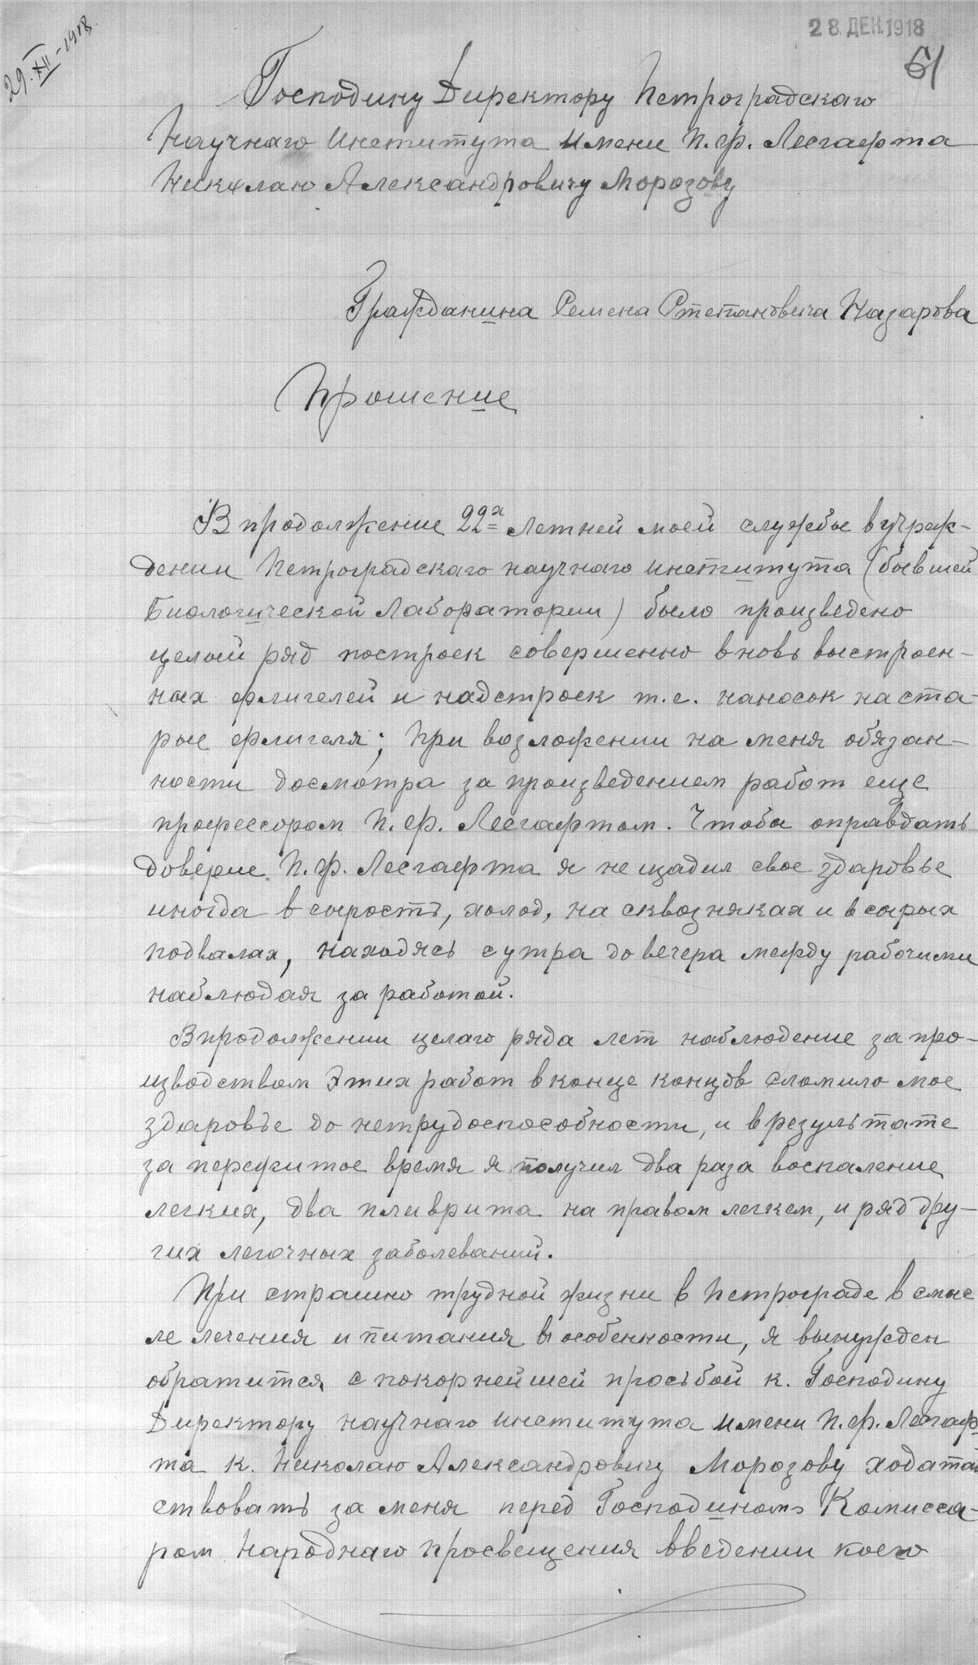 29. XII - 1918.
28 ДЕК. 1918
61
Господину Директору Петроградскаго
Научнаго Института имени П. Ф. Лесгафта
Николаю Александровичу Морозову
Гражданина Семена Степановича Назарова
Прошение
В продолжение 22х летней моей службы в учреж-
дении Петроградскаго научнаго института (бывшей
Биологической Лаборатории) было произведено
целый ряд построек совершенно вновь выстроен-
ных флигелей и надстроек т.е. наносок на ста-
рые флигеля; При возложении на меня обязан-
ности досмотра за произведением работ еще
профессором П. Ф. Лесгафтом. Чтобы оправдать
доверие П. Ф. Лесгафта я не щадил свое здоровье
иногда в сырость, холод, на сквозняках и в сырых
подвалах, находясь с утра до вечера между рабочими
наблюдая за работой.
В продолжении целаго ряда лет наблюдение за про-
изводством этих работ в конце концов сломило мое
здоровье до нетрудоспособности, и в результате
за пережитое время я получил два раза воспаление
легких, два плеврита на правом легком, и ряд дру-
гих легочных заболеваний.
При страшно трудной жизни в Петрограде в смыс
ле лечения и питания в особенности, я вынужден
обратится с покорнейшей просьбой к. Господину
Директору научнаго института имени П. Ф. Лесгаф-
та к. Николаю Александровичу Морозову ходатай
ствовать за меня перед Господином Комисса-
ром Народнаго Просвещения введении коего